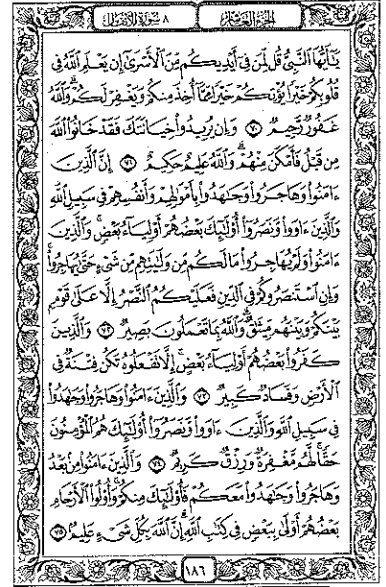 الجزء العاشر ٨ سورة الأنفال
يَٰٓأَيُّهَا ٱلنَّبِيُّ قُل لِّمَن فِىٓ أَيْدِيكُم مِّنَ ٱلْأَسْرَىٰٓ إِن يَعْلَمِ ٱللَّهُ فِى
قُلُوبِكُمْ خَيْرًا يُؤْتِكُمْ خَيْرًا مِّمَّآ أُخِذَ مِنكُمْ وَيَغْفِرْ لَكُمْ وَٱللَّهُ
غَفُورٌ رَّحِيمٌ ٧٠ وَإِن يُرِيدُوا۟ خِيَانَتَكَ فَقَدْ خَانُوا۟ ٱللَّهَ
مِن قَبْلُ فَأَمْكَنَ مِنْهُمْ وَٱللَّهُ عَلِيمٌ حَكِيمٌ ٧١ إِنَّ ٱلَّذِينَ
ءَامَنُوا۟ وَهَاجَرُوا۟ وَجَٰهَدُوا۟ بِأَمْوَٰلِهِمْ وَأَنفُسِهِمْ فِى سَبِيلِ ٱللَّهِ
وَٱلَّذِينَ ءَاوَوا۟ وَّنَصَرُوٓا۟ أُو۟لَٰٓئِكَ بَعْضُهُمْ أَوْلِيَآءُ بَعْضٍ وَٱلَّذِينَ
ءَامَنُوا۟ وَلَمْ يُهَاجِرُوا۟ مَا لَكُم مِّن وَلَٰيَتِهِم مِّن شَىْءٍ حَتَّىٰ يُهَاجِرُوا۟
وَإِنِ ٱسْتَنصَرُوكُمْ فِى ٱلدِّينِ فَعَلَيْكُمُ ٱلنَّصْرُ إِلَّا عَلَىٰ قَوْمٍۭ
بَيْنَكُمْ وَبَيْنَهُم مِّيثَٰقٌ وَٱللَّهُ بِمَا تَعْمَلُونَ بَصِيرٌ ٧٢ وَٱلَّذِينَ
كَفَرُوا۟ بَعْضُهُمْ أَوْلِيَآءُ بَعْضٍ إِلَّا تَفْعَلُوهُ تَكُن فِتْنَةٌ فِى
ٱلْأَرْضِ وَفَسَادٌ كَبِيرٌ ٧٣ وَٱلَّذِينَ ءَامَنُوا۟ وَهَاجَرُوا۟ وَجَٰهَدُوا۟
فِى سَبِيلِ ٱللَّهِ وَٱلَّذِينَ ءَاوَوا۟ وَّنَصَرُوٓا۟ أُو۟لَٰٓئِكَ هُمُ ٱلْمُؤْمِنُونَ
حَقًّا لَّهُم مَّغْفِرَةٌ وَرِزْقٌ كَرِيمٌ ٧٤ وَٱلَّذِينَ ءَامَنُوا۟ مِنۢ بَعْدُ
وَهَاجَرُوا۟ وَجَٰهَدُوا۟ مَعَكُمْ فَأُو۟لَٰٓئِكَ مِنكُمْ وَأُو۟لُوا۟ ٱلْأَرْحَامِ
بَعْضُهُمْ أَوْلَىٰ بِبَعْضٍ فِى كِتَٰبِ ٱللَّهِ إِنَّ ٱللَّهَ بِكُلِّ شَىْءٍ عَلِيمٌۢ ٧٥
١٨٦